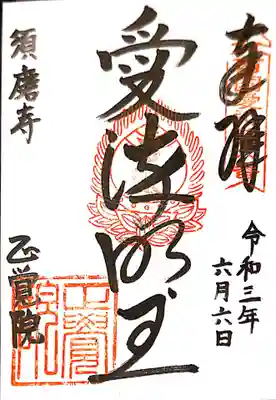 奉拝
令和三年
六月六日
愛染明王
須磨寺
正覚院